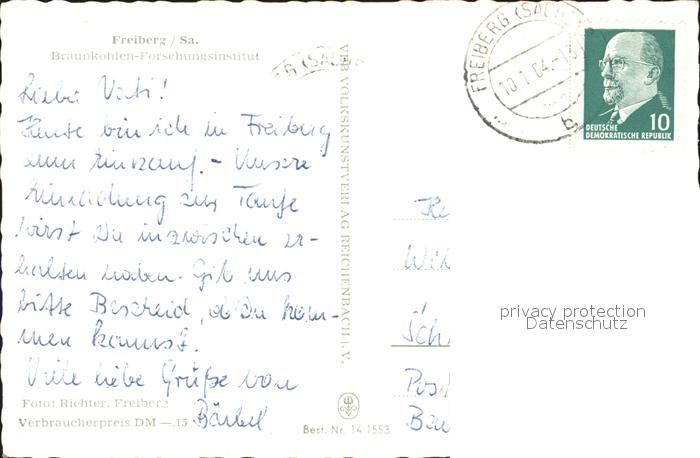 Freiberg / Sa.
Braunkohlen-Forschungsinstitut
Lieber Vati!
Heute bin ich in Freiberg
zum Einkauf. - Unsere
Einladung zur Taufe
wirst Du inzwischen er-
halten haben. Gib uns
bitte Bescheid, ob Du kom-
men kannst.
Viele liebe Grüße von
Bärbel
Foto: Richter, Freiberg
Verbraucherpreis DM —.15
Best. Nr. 14 1553
VEB VOLKSKUNSTVERLAG REICHENBACH i. V.
FREIBERG (SACH
10.1.64.-13
b
DEUTSCHE
DEMOKRATISCHE REPUBLIK
10
privacy protection
Datenschutz